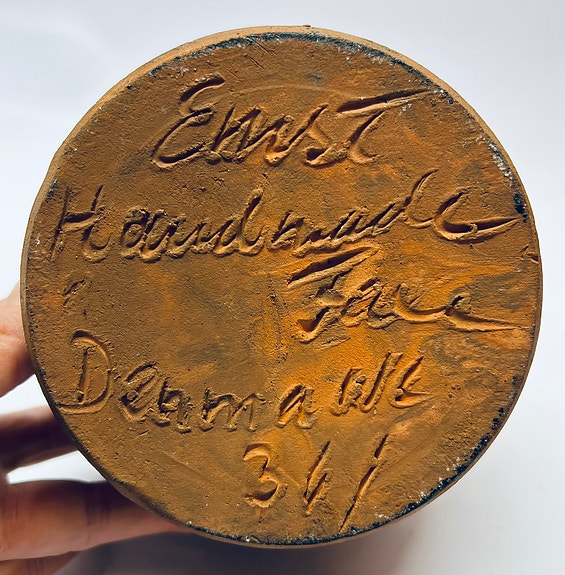 Ernst
Handmade
Faxe
Denmark
361